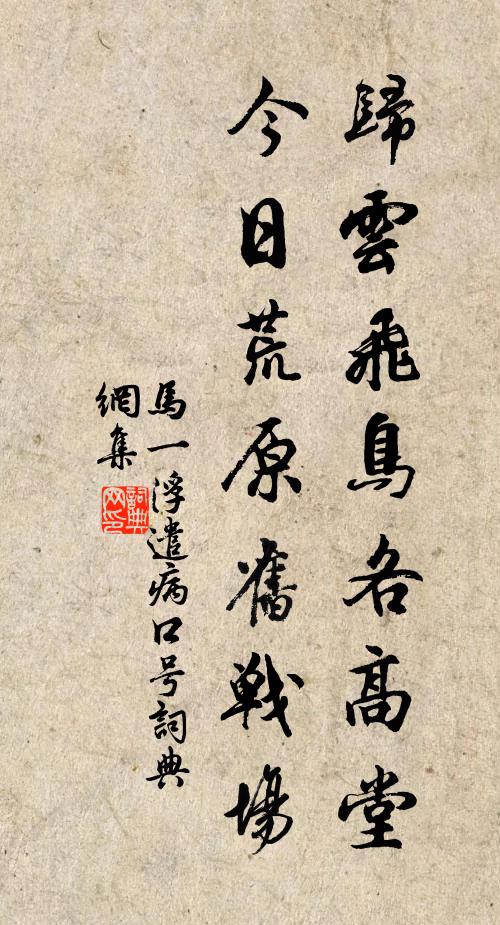 歸雲飛鳥各高堂
今日荒原舊戰場
馬一浮遣病口号詞典
網集
詞典
网印